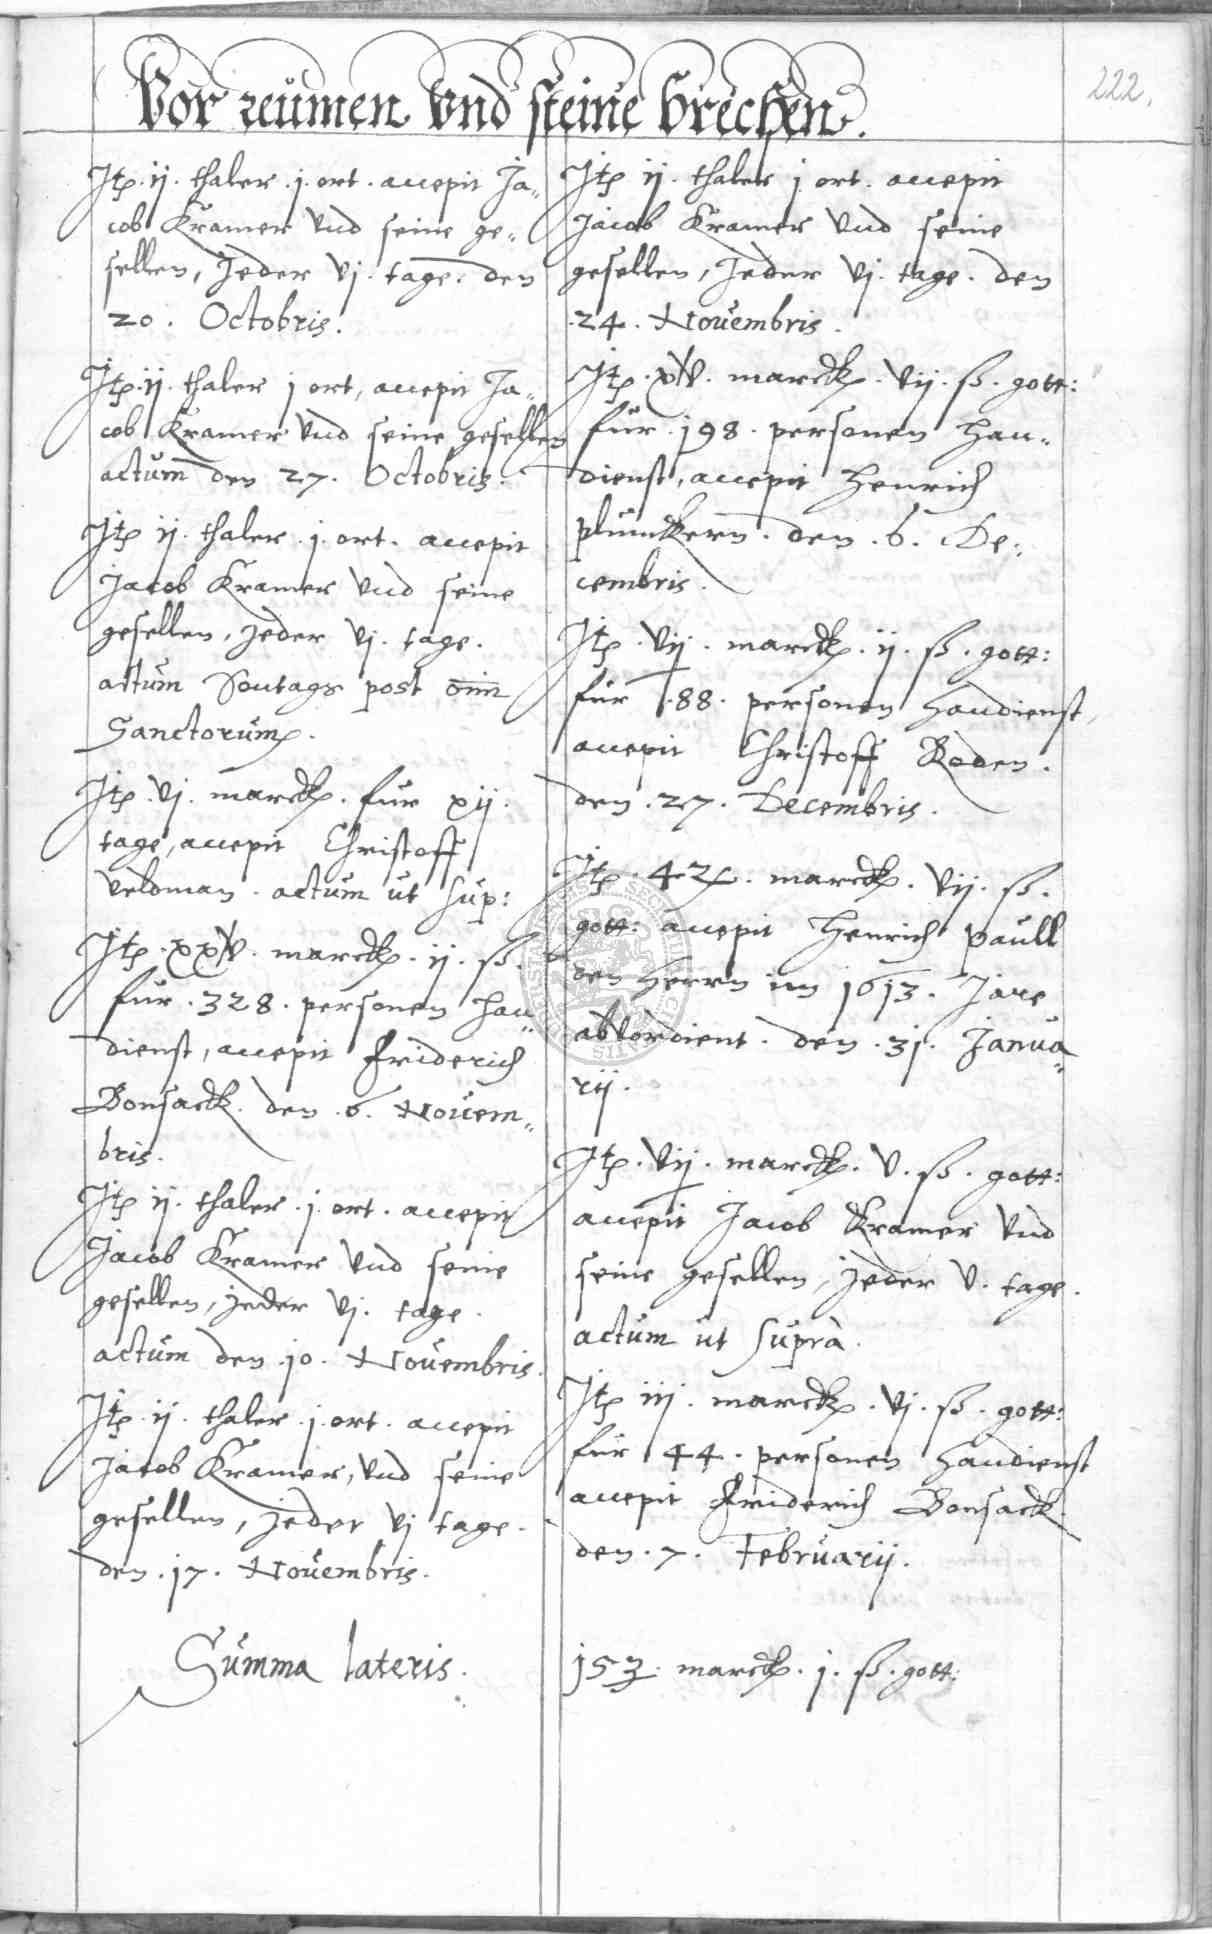 222.
Vor reumen Vnd steine brechen.
Jtp. ij. thaler. j. ort. accepit Ja„
cob Kramer Vnd seine ge„
sellen, Jeder Vj. tage. den
20. Octobris.
Jtp. ij. thaler j ort, accepit Ja„
cob Kramer Vnd seine gesellen
actum den 27. Octobris.
Jtp ij. thaler. j. ort. accepit
Jacob Kramer Vnd seine
gesellen, Jeder Vj. tage.
actum Sontags post om̅
Sanctorum.
Jtp. Vj. marck. fur xij.
tage, accepit Christoff
Veldman. actum ut sup:
Jtp. xxiV. marck. ij. ß.
fur. 328. personen Han„
dienst, accepit Friderich
Bonsack. den. 6. Novem„
bris.
Jtp ij. thaler. j. ort. accepit
Jacob Kramer Vnd seine
gesellen, jeder Vj. tage.
actum den. 10. Novembris.
Jtp. ij. thaler. j. ort. accepit
Jacob Kramer, Vnd seine
gesellen, jeder Vj tage.
den. 17. Novembris.
Jtp ij. thaler j ort. accepit
Jacob Kramer Vnd seine
gesellen, Jeder Vj. tage. den
.24. Novembris.
Jtp. xV. marck. Vij. ß. gott:
fur. 198. personen Han„
dienst, accepit Henrich
Plumckern. den. 6. De„
cembris.
Jtp. Vij. marck. ij. ß. gott:
fur. 88. personen Handienst,
accepit Christoff Roden.
den. 27. Decembris.
Jtp. 42. marck. Vij. ß.
gott: accepit Henrich Paull
den Herrn im 1613. Jare
abvordient. den. 31. Janua„
rij.
Jtp. Vij. marck. V. ß. gott:
accepit Jacob Kramer Vnd
seine gesellen, jeder V. tage.
actum ut supra.
Jtp iij. marck. Vj. ß. gott:
fur 44. personen Handienst
accepit Friderich Bonsack
den. 7. Februarij.
Summa lateris.
153. marck. j. ß. gott: